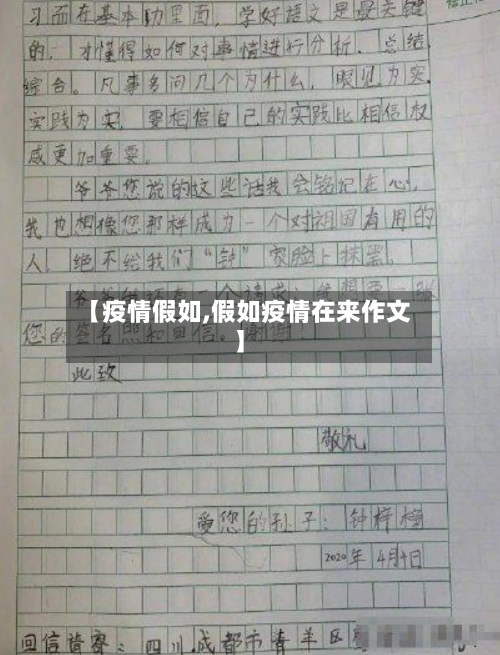 习而在基本功里面，学好语文是最关键
的，才懂得如何对事情进行分析、总结、
综合。凡事多问几个为什么，眼见为实，
实践为实，要相信自己的实践比相信权
威更加重要。
爷爷您说的这些话我会铭记在心，
我也想像您那样成为一个对祖国有用的
人，绝不给我们“钟”家脸上抹黑。
【疫情假如,假如疫情在来作文
】
您的签名照和回信。谢谢
此致
敬礼
爱您的孙子：钟梓
2020年4月4日
回信皆寄：四川成都市青羊区